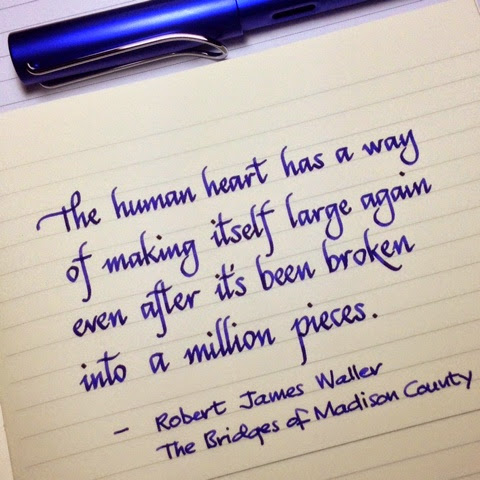 The human heart has a way
of making itself large again
even after it's been broken
into a million pieces.
- Robert James Waller
The Bridges of Madison County